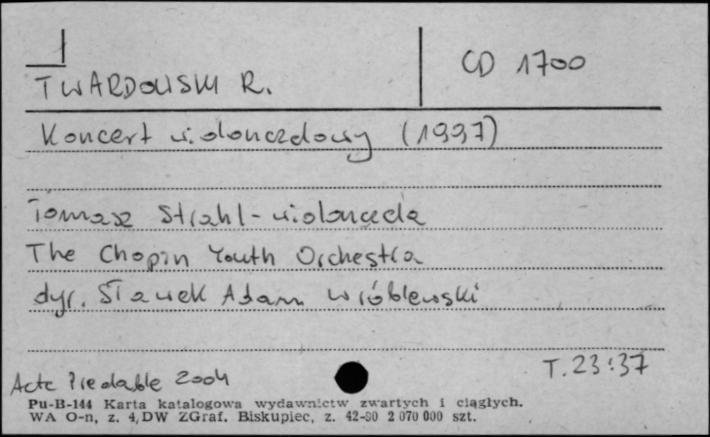 1
TWARDOWSKI R.
CD 1700
Koncert wiolonczelowy (1997)
Tomasz Strahl - wiolonczela
The Chopin Youth Orchestra
dyr. Sławek Adam Wróblewski
T. 23:37
Acte Préalable 2004
Pu-B-144 Karta katalogowa wydawnictw zwartych i ciągłych.
WA O-n, z. 4, DW ZGraf. Biskupiec, z. 42-80 2 070 000 szt.